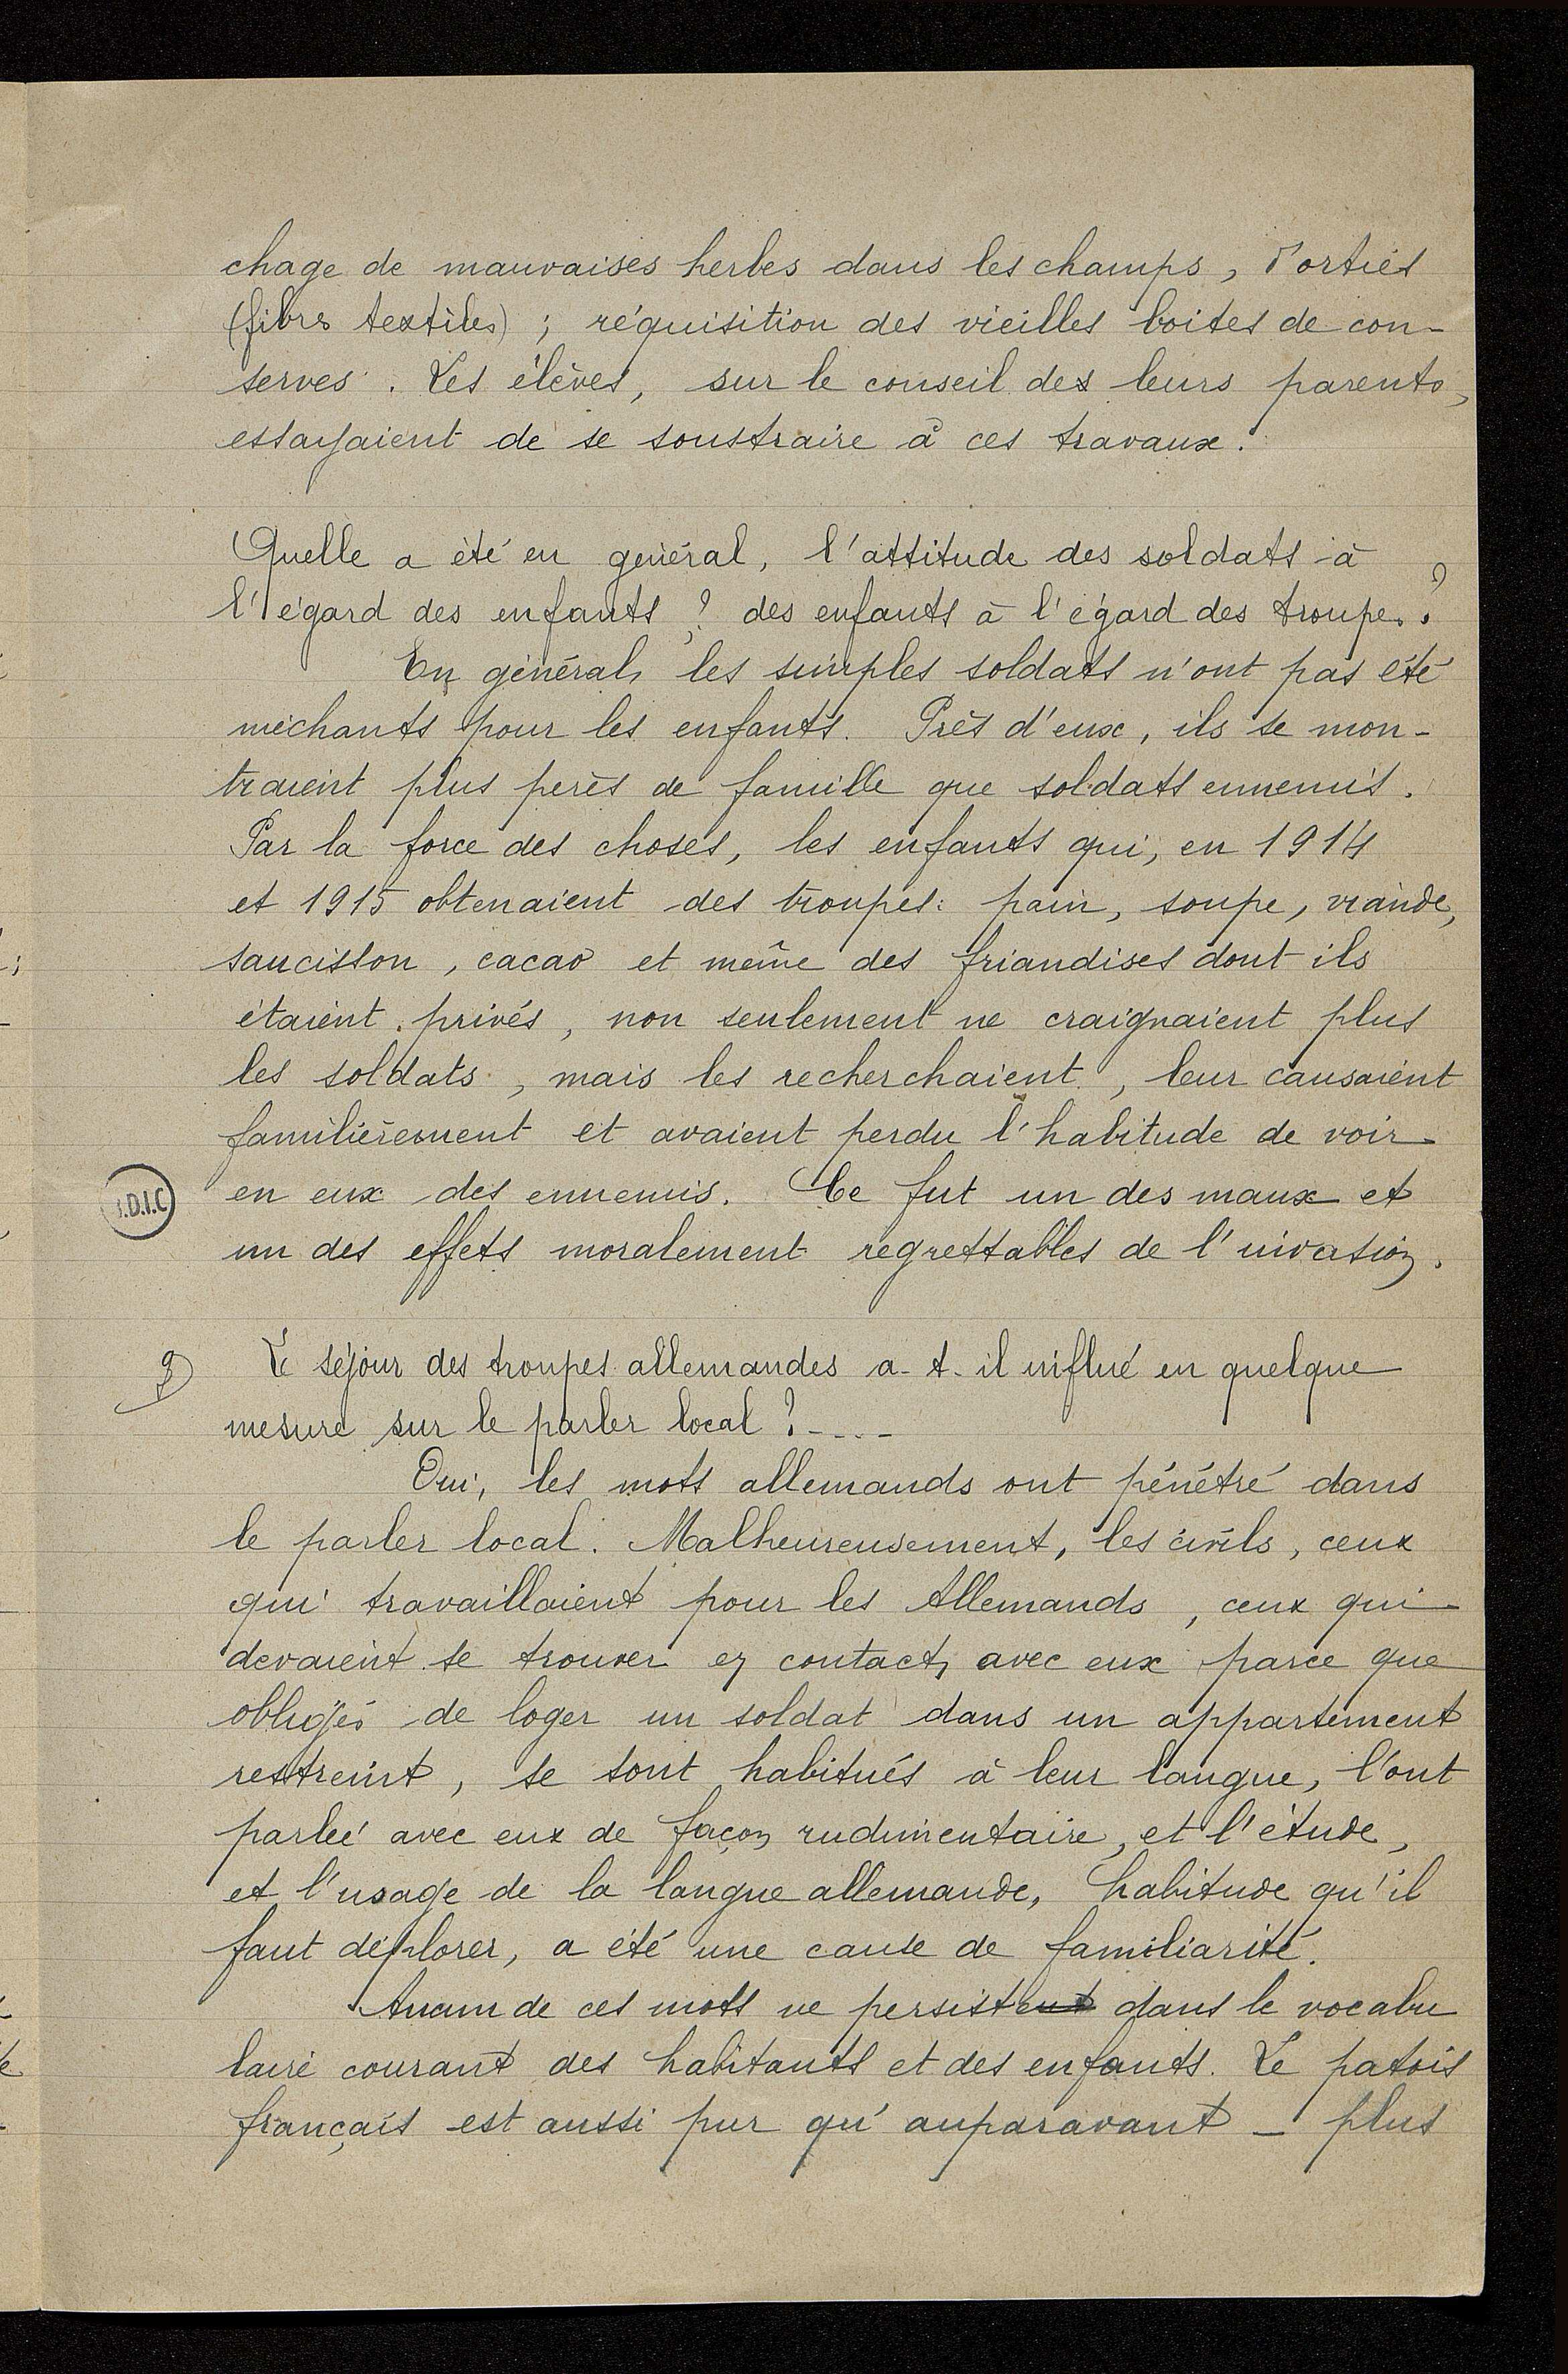 chage de mauvaises herbes dans les champs, d'orties
(fibres textiles) ; réquisition des vieilles boites de con-
serves. Les élèves, sur le conseil des leurs parents,
essayaient de se soustraire à ces travaux.
Quelle a été en général, l'attitude des soldats à
l'égard des enfants ? des enfants à l'égard des troupes ?
En général, les simples soldats n'ont pas été
méchants pour les enfants. Près d'eux, ils se mon-
traient plus pères de famille que soldats ennemis.
Par la force des choses, les enfants qui, en 1914
et 1915 obtenaient des troupes : pain, soupe, viande,
saucisson, cacao et même des friandises dont ils
étaient privés, non seulement ne craignaient plus
les soldats, mais les recherchaient, leur causaient
familièrement et avaient perdu l'habitude de voir
en eux des ennemis. Ce fut un des maux et
un des effets moralement regrettables de l'invasion.
Le séjour des troupes allemandes a-t-il influé en quelque
mesure sur le parler local ?----
Oui, les mots allemands ont pénétré dans
le parler local. Malheureusement, les civils, ceux
qui travaillaient pour les Allemands, ceux qui
devaient se trouver en contact avec eux parce que
obligés de loger un soldat dans un appartement
restreint, se sont habitués à leur langue, l'ont
parlée avec eux de façon rudimentaire, et l'étude,
et l'usage de la langue allemande, habitude qu'il
faut déplorer, a été une cause de familiarité.
Aucun de ces mots ne persistent dans le vocabu
laire courant des habitants et des enfants. Le patois
français est aussi pur qu'auparavant – plus
B.D.I.C